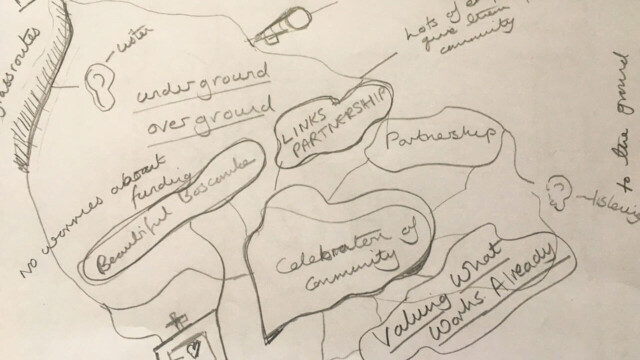 Lots of
give them
community
underground
overground
LINKS
PARTNERSHIP
Partnership
to the ground
No worries about
funding
Beautiful Boscombe
listening
Celebration of
community
Valuing What
Works Already